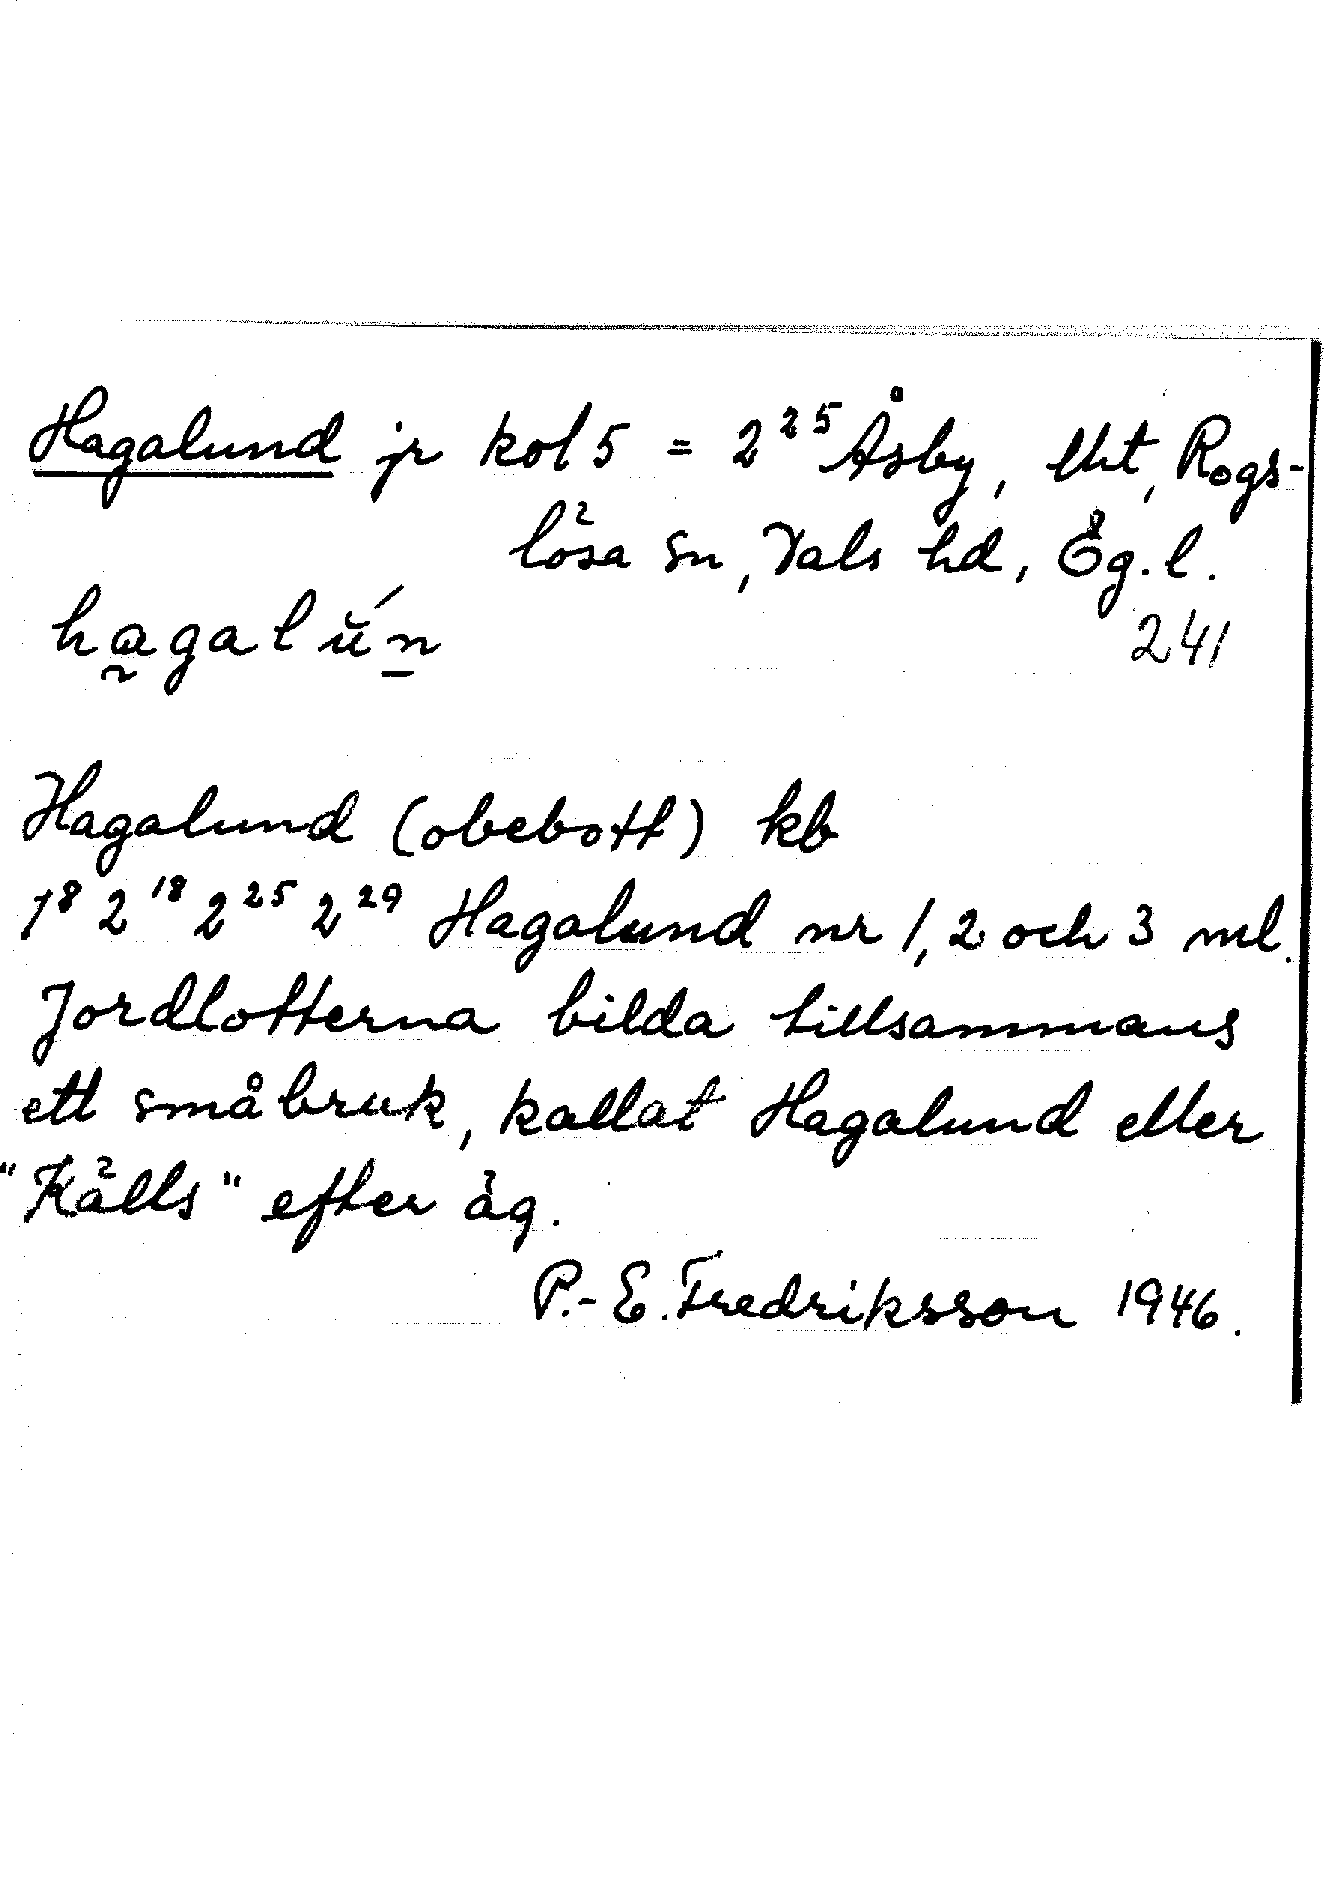 Hagalund jr kol 5 = 2²⁵ Åsby, lht, Rogs-
lösa sn, Dals hd, Ög. l.
hagalún
241
Hagalund (obebott) kb
1⁸ 2¹⁸ 2²⁵ 2²⁹ Hagalund nr 1, 2 och 3 ml.
Jordlotterna bilda tillsammans
ett småbruk, kallat Hagalund eller
"Källs" efter äg.
P.-E. Fredriksson 1946.